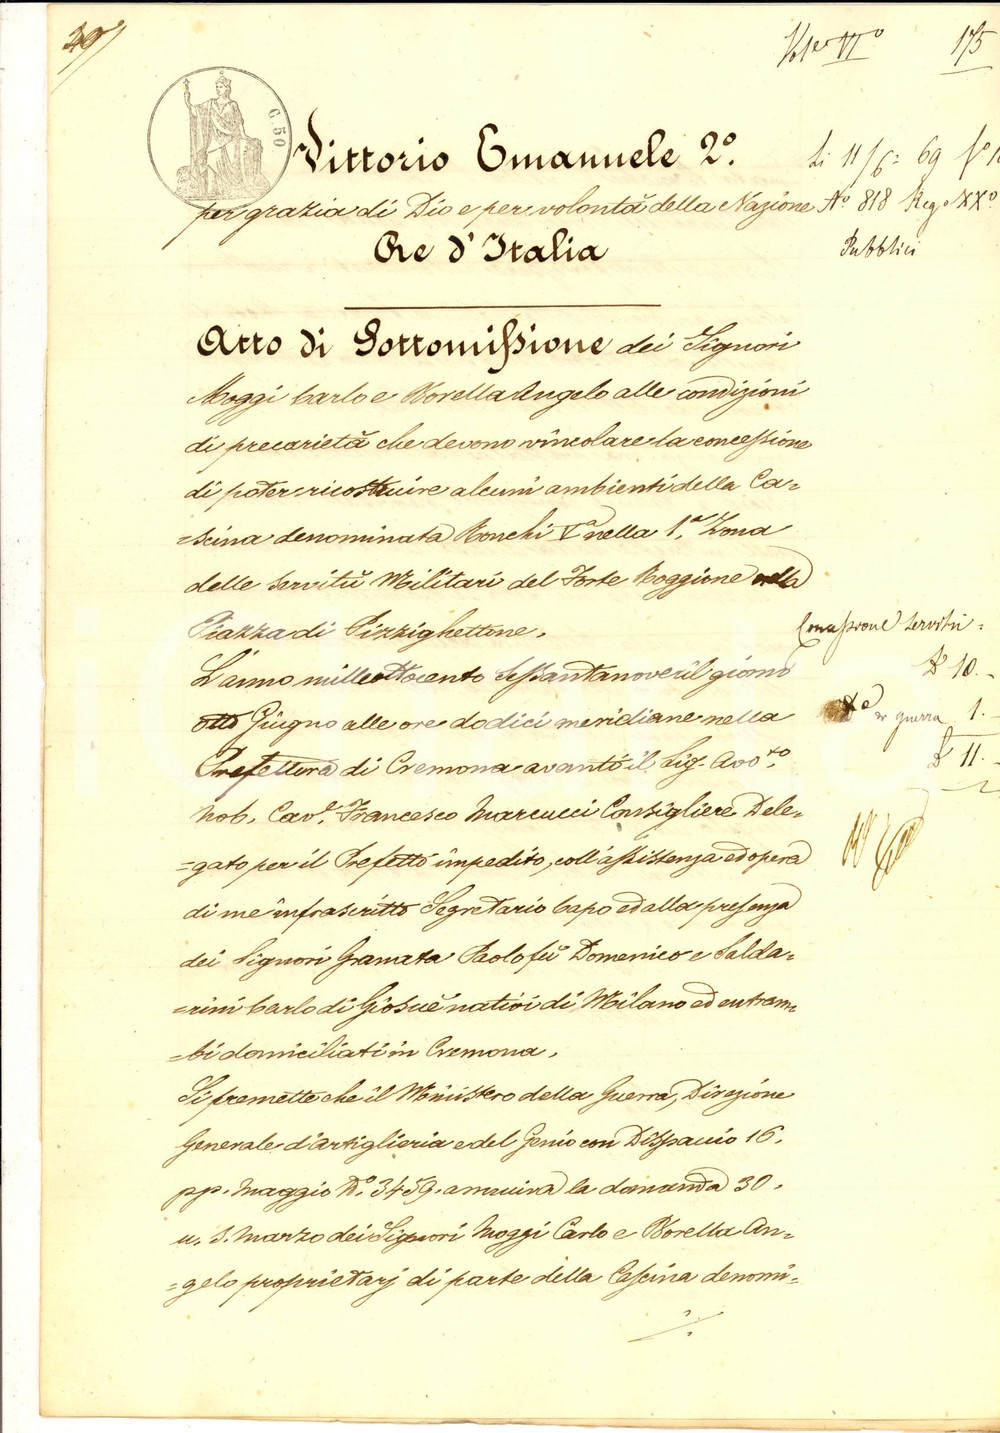 175
C. 50
Vittorio Emanuele 2º.
per grazia di Dio e per volontà della Nazione
Re d'Italia
Li 11/6= 69
Nº 818 Reg. XXº
Pubblici
Atto di Sottomissione dei Signori
Moggi Carlo e Borella Angelo alle condizioni
di precarietà che devono vincolare la concessione
di poter ricostruire alcuni ambienti della Ca=
=scina denominata Ronchi Vª nella 1.ª Zona
delle Servitù Militari del Forte Roggione nella
Piazza di Pizzighettone.
L'anno milleottocento sessantanove il giorno
otto Giugno alle ore dodici meridiane nella
Prefettura di Cremona avanti il Sig. Avv.to
Nob. Cav.e Francesco Marcucci Consigliere Dele=
=gato per il Prefetto impedito, coll'assistenza ed opera
di me infrascritto Segretario Capo ed alla presenza
dei Signori Granata Paolo fu Domenico e Salda=
=rini Carlo di Giosuè nativi di Milano ed entram=
=bi domiciliati in Cremona.
Si premette che il Ministero della Guerra, Direzione
Generale d'artiglieria e del Genio con Dispaccio 16.
pp. Maggio Nº. 3459. annuiva la domanda 30.
u. s. Marzo dei Signori Moggi Carlo e Borella An=
=gelo proprietarj di parte della Cascina denomi=
./.
Servitù =
£ 10. -
guerra 1. -
£ 11. -